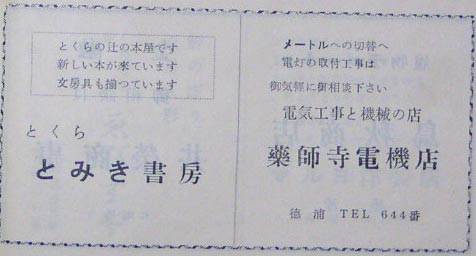 とくらの辻の本屋です
新しい本が来ています
文房具も揃つています
とくら
とみき書房
メートルへの切替へ
電灯の取付工事は
御気軽に御相談下さい
電気工事と機械の店
藥師寺電機店
徳浦 TEL 644番